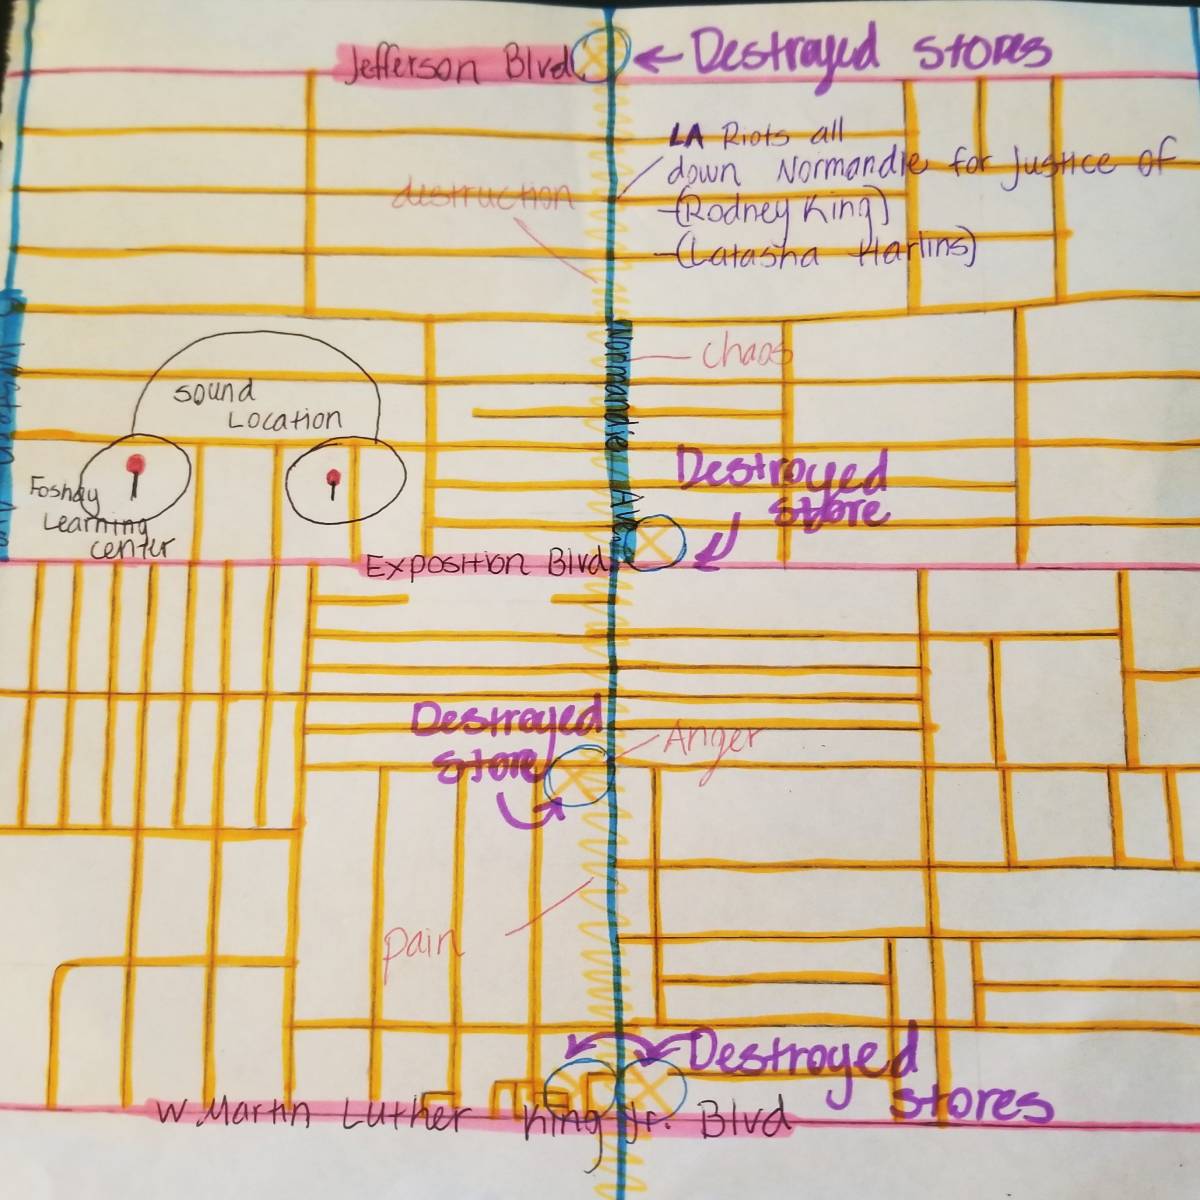 Jefferson Blvd
← Destroyed stores
LA Riots all
down Normandie for justice of
-(Rodney King)
-(Latasha Harlins)
destruction
chaos
Normandie Ave
sound
Location
Foshay
Learning
center
S Western Ave
Destroyed
store
Exposition Blvd
Destroyed
store
Anger
pain
Destroyed
stores
W. Martin Luther King Jr. Blvd